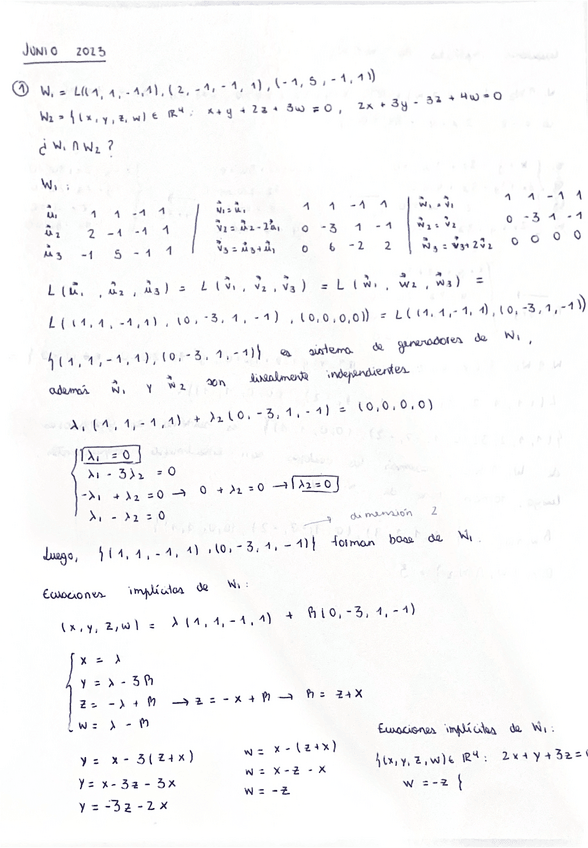 JUNIO 2023
① W₁ = L((1, 1, -1, 1), (2, -1, -1, 1), (-1, 5, -1, 1))
W₂ = {(x, y, z, w) ∈ ℝ⁴ : x + y + 2z + 3w = 0, 2x + 3y - 3z + 4w = 0
¿ W₁ ∩ W₂ ?
W₁ :
u⃗₁ 1 1 -1 1 | v⃗₁ = u⃗₁ 1 1 -1 1 | w⃗₁ = v⃗₁ 1 1 -1 1
u⃗₂ 2 -1 -1 1 | v⃗₂ = u⃗₂ - 2u⃗₁ 0 -3 1 -1 | w⃗₂ = v⃗₂ 0 -3 1 -1
u⃗₃ -1 5 -1 1 | v⃗₃ = u⃗₃ + u⃗₁ 0 6 -2 2 | w⃗₃ = v⃗₃ + 2v⃗₂ 0 0 0 0
L(u⃗₁, u⃗₂, u⃗₃) = L(v⃗₁, v⃗₂, v⃗₃) = L(w⃗₁, w⃗₂, w⃗₃) =
L((1, 1, -1, 1), (0, -3, 1, -1), (0, 0, 0, 0)) = L((1, 1, -1, 1), (0, -3, 1, -1))
{(1, 1, -1, 1), (0, -3, 1, -1)} es sistema de generadores de W₁,
además w⃗₁ y w⃗₂ son linealmente independientes
λ₁ (1, 1, -1, 1) + λ₂ (0, -3, 1, -1) = (0, 0, 0, 0)
λ₁ = 0
λ₁ - 3λ₂ = 0
-λ₁ + λ₂ = 0 → 0 + λ₂ = 0 → λ₂ = 0
λ₁ - λ₂ = 0
dimensión 2
Luego, {(1, 1, -1, 1), (0, -3, 1, -1)} forman base de W₁
Ecuaciones implícitas de W₁ :
(x, y, z, w) = λ (1, 1, -1, 1) + β (0, -3, 1, -1)
x = λ
y = λ - 3β
z = -λ + β → z = -x + β → β = z + x
w = λ - β
y = x - 3(z + x)
y = x - 3z - 3x
y = -3z - 2x
w = x - (z + x)
w = x - z - x
w = -z
Ecuaciones implícitas de W₁ :
{(x, y, z, w) ∈ ℝ⁴ : 2x + y + 3z = 0
w = -z }